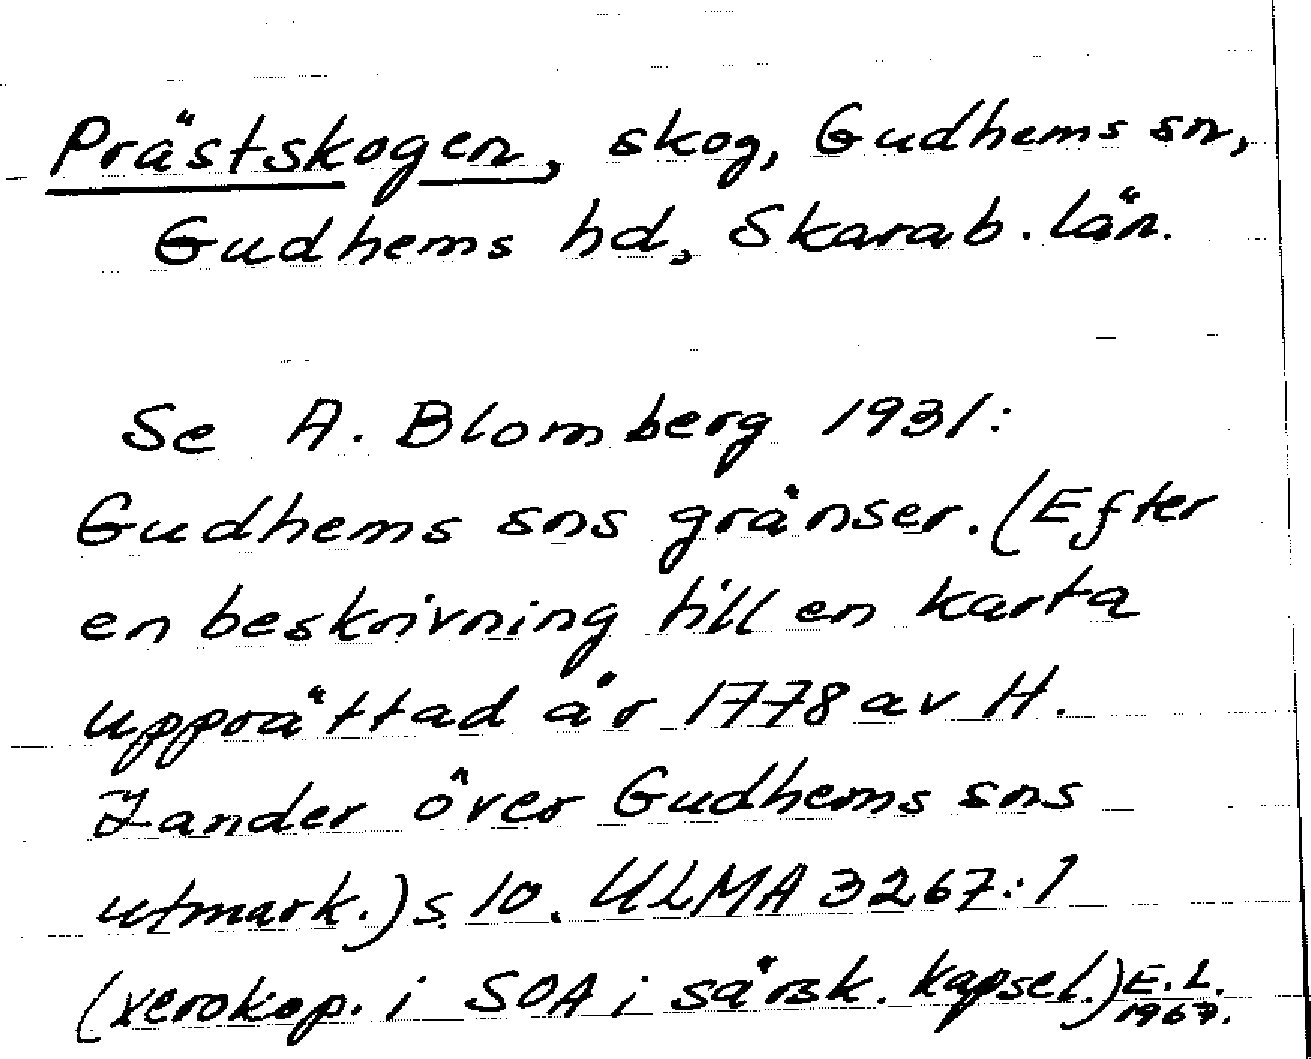 Prästskogen, skog, Gudhems sn,
Gudhems hd, Skarab. län.
Se A. Blomberg 1931:
Gudhems sns gränser. (Efter
en beskrivning till en karta
upprättad år 1778 av H.
Zander över Gudhems sns
utmark.) s. 10. ULMA 3267:1
(xerokop. i SOA i särsk. kapsel.) E.L.
1967.